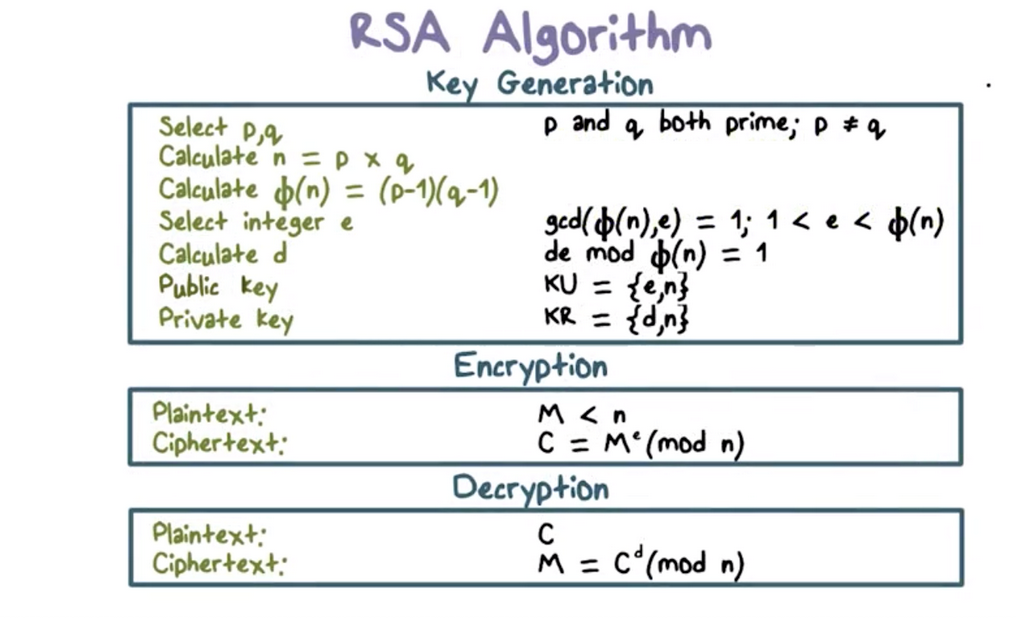 RSA Algorithm
Key Generation
Select p,q p and q both prime; p ≠ q
Calculate n = p x q
Calculate ϕ(n) = (p-1)(q-1)
Select integer e gcd(ϕ(n),e) = 1; 1 < e < ϕ(n)
Calculate d de mod ϕ(n) = 1
Public key KU = {e,n}
Private key KR = {d,n}
Encryption
Plaintext: M < n
Ciphertext: C = Mᵉ(mod n)
Decryption
Plaintext: C
Ciphertext: M = Cᵈ(mod n)